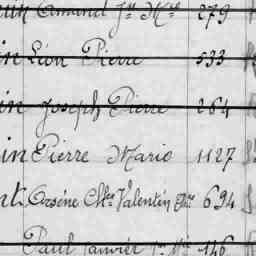 Armand Jn Mie 279
in Léon Pierre 533
in Joseph Pierre 264
in Pierre Mario 1127
nt Arsène Chles Valentin 694
Paul Janvier Jn Mie 146